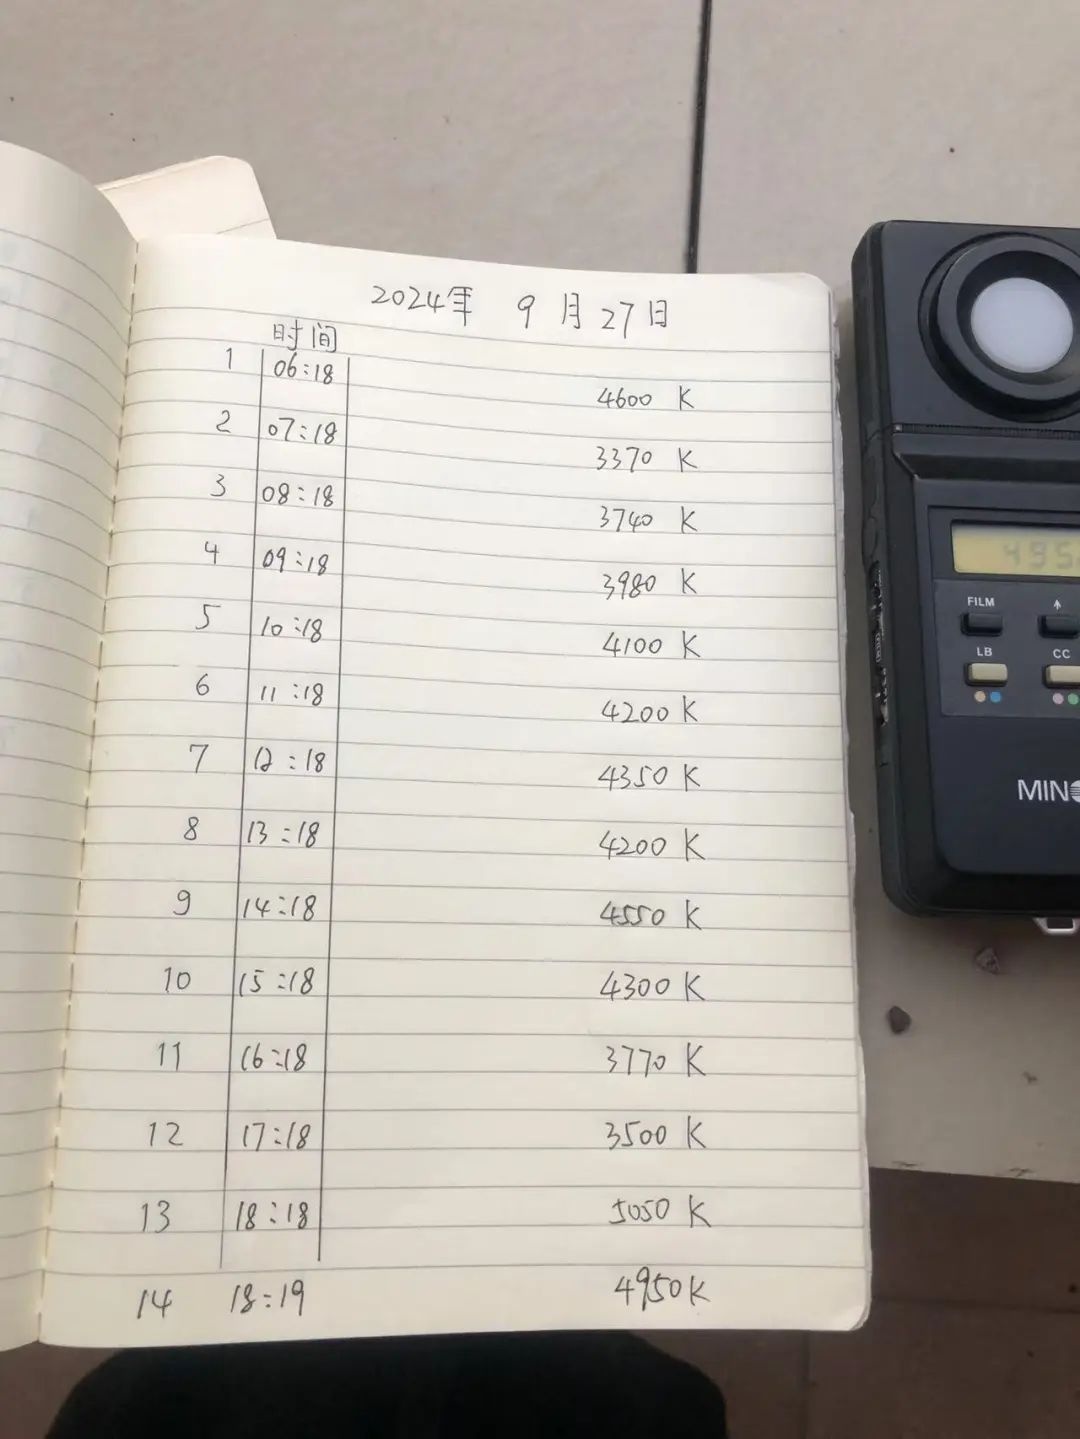 2024年 9月27日
时间
1 06:18 4600 K
2 07:18 3370 K
3 08:18 3740 K
4 09:18 3980 K
5 10:18 4100 K
6 11:18 4200 K
7 12:18 4350 K
8 13:18 4200 K
9 14:18 4550 K
10 15:18 4300 K
11 16:18 3770 K
12 17:18 3500 K
13 18:18 5050 K
14 18:19 4950 K
495
FILM
LB CC
MINO